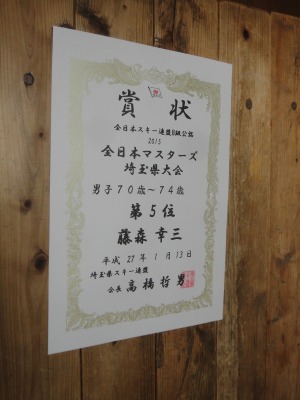 賞状
全日本スキー連盟B級公認
2015
全日本マスターズ
埼玉県大会
男子70歳～74歳
第5位
藤森幸三
平成27年1月13日
埼玉県スキー連盟
会長 高橋哲男